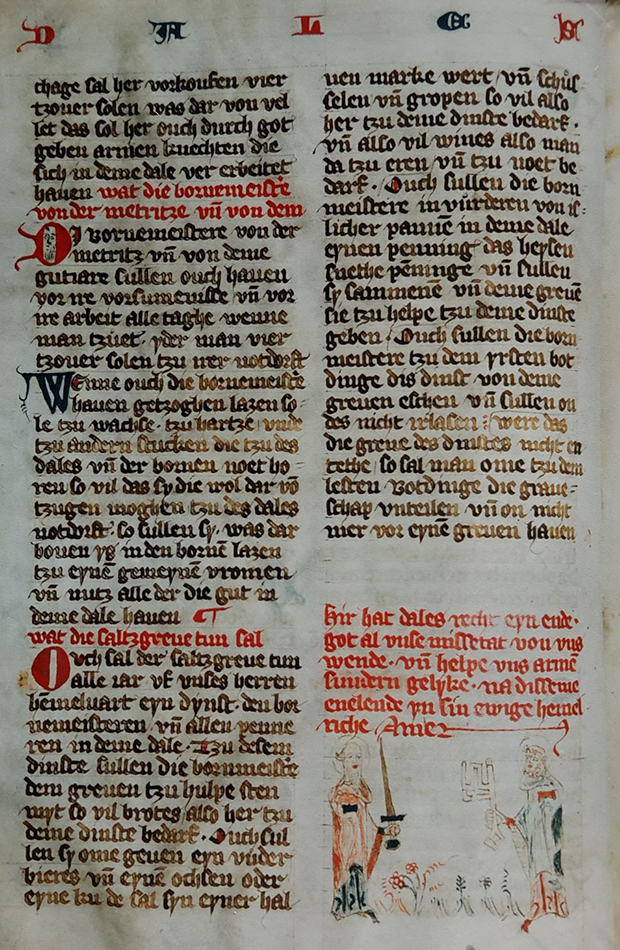 D A L E S
chage sal her vorkoufen vier
tzouer solen was dar von vel
let das sol her ouch durch got
geben armen knechten die
sich in deme dale ver erbeitet
hauen wat die bornemeist'e
von der metritze vn̄ von dem
DI bornemeistere von der
metritz vn̄ von deme
gutiare sullen ouch hauen
vor ire vorsumenisse vn̄ vor
ire arbeit alle taghe wenne
man tzuet· yder man vier
tzouer solen tzu irer notdorft
WEnne ouch die bornemeist'e
hauen getzoghen lazen so-
le tzu wachse· tzu hartze· vnde
tzu andern stucken die tzu des
dales vn̄ der bornen noet ho-
ren so vil das sy die wol dar vō
tzugen moghen tzu des dales
notdorft· so sullen sy· was dar
bouen ys in den bornē lazen
tzu eynē gemeynē vromen
vn̄ nutz alle der die gut in
deme dale hauen
wat die saltzgreue tun sal
Ouch sal der saltzgreue tun
alle iar vf vnses herren
hēmeluart eyn dynst· den bor
nemeisteren vn̄ allen penne
ren in deme dale· Tzu desem
dinste sullen die bornmeist'e
dem greuen tzu hulpe sten
myt so vil brotes also her tzu
deme dinste bedarf· Ouch sul
len sy ome geuen eyn vuder
bieres vn̄ eynē ochsen oder
eyne ku de sal syn eyner hal
uen marke wert vn̄ schus
selen vn̄ gropen so vil also
her tzu deme dinste bedarf·
vn̄ also vil wines also man
da tzu eren vn̄ tzu noet be-
darf· Ouch sullen die born
meistere in vurderen von is-
licher pannē in deme dale
eynen penning das heysen
suethe pēninge vn̄ sullen
sy sammenē vn̄ deme greuē
sie tzu helpe tzu deme dinste
geben· Ouch sullen die born
meistere tzu dem yrsten bot
dinge dis dinst von deme
greuen eschen vn̄ sullen on
des nicht irlasen· were das
die greue des dinstes nicht en
tethe· so sal man ome tzu dem
lesten botdinge die graue-
schap vnteilen vn̄ on nicht
mer vor eynē greuen hauen
hir hat dales recht eyn ende·
got al vnse missetat von vns
wende· vn̄ helpe vns armē
sundern gelyke· na disseme
enelende yn sin ewige hemel
riche Amen